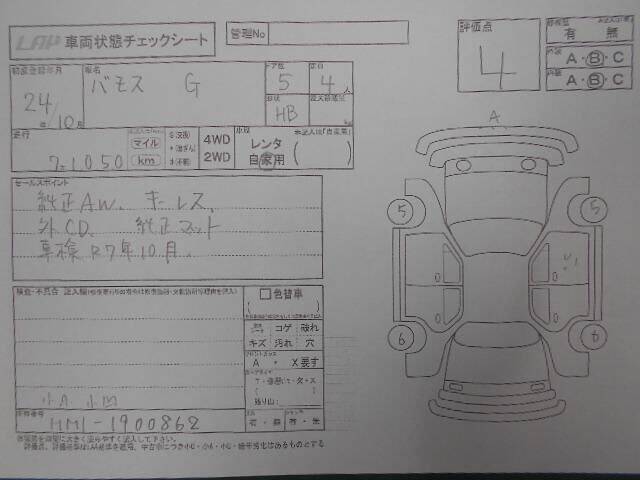 LAP 車両状態チェックシート
管理No
評価点
4
修復歴
有 無
外装
A・B・C
内装
A・B・C
初度登録年月
24/10月
車名
バモス G
ドア数
5
定員
4人
形状
HB
最大積載量
走行
71050
マイル
km
4WD
2WD
車歴
レンタ
自家用
( )
セールスポイント
純正AW、キーレス、
外CD、純正マット
車検R7年10月、
検査・不具合 記入欄
色替車
コゲ 破れ
キズ 汚れ 穴
A ・ X要す
残り山
小A 小凹
車台番号
HM1-1900862
有・無 有・無
A
5
5
U1
6
6